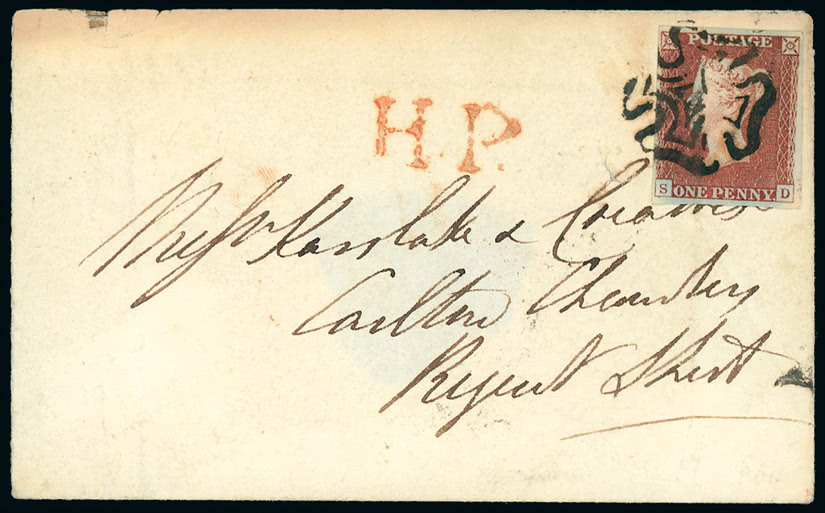 POSTAGE
S ONE PENNY. D
H.P.
Messrs Karslake &
Carlton Chambers
Regent Street